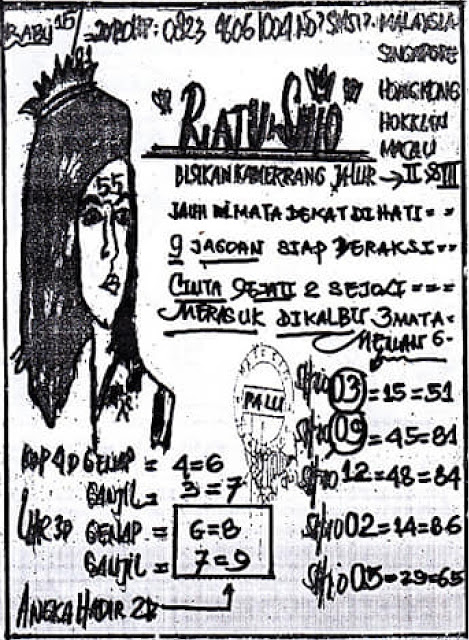 RABU 15
0823 4606 1004
MALAYSIA
SINGAPORE
HONGKONG
HOKKIAN
MACAU
81
RATU SHIO
BISIKAN KAMERRANG JALUR → II S III
55
JAUH DI MATA DEKAT DI HATI = =
9 JAGOAN SIAP BERAKSI = =
CINTA SEJATI 2 SEJOLI = = =
MERASUK DIKALBU 3 MATA =
6 -
PALU
Shio 03 = 15 = 51
Shio 09 = 45 = 81
Shio 12 = 48 = 84
Shio 02 = 14 = 86
Shio 05 = 29 = 65
KOP 4D GENAP = 4 = 6
GANJIL = 3 = 7
GENAP = 6 = 8
GANJIL = 7 = 9
ANGKA HADIR 2D